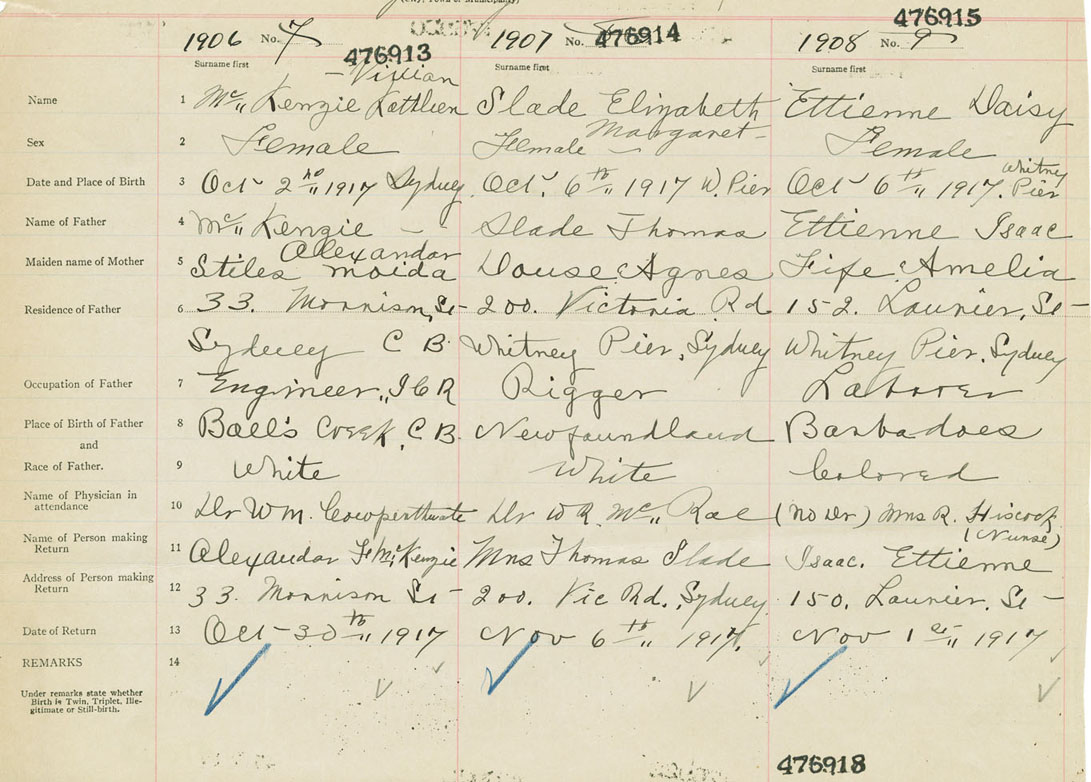 (City, Town or Municipality)
1906 No. 7 476913 1907 No. 476914 1908 No. 9 476915
Surname first Surname first Surname first
Vivian
Name 1 Mc,, Kenzie Kathleen Slade Elizabeth Ettienne Daisy
Margaret
Sex 2 Female Female Female
Whitney
Date and Place of Birth 3 Oct 2nd,, 1917 Sydney Oct. 6th,, 1917 W. Pier Oct 6th,, 1917. Pier
Name of Father 4 Mc,, Kenzie Slade Thomas Ettienne Isaac
Alexandar
Maiden name of Mother 5 Stiles Moida Douse Agnes Fife Amelia
Residence of Father 6 33. Morrison, St 200. Victoria Rd 152. Laurier, St
Sydney C B Whitney Pier, Sydney Whitney Pier, Sydney
Occupation of Father 7 Engineer,, I C R Rigger Laborer
Place of Birth of Father 8 Ball's Creek, C B. Newfoundland Barbadoes
and
Race of Father. 9 White White Colored
Name of Physician in
attendance 10 Dr Wm. Cowperthwate Dr W R. Mc,, Rae (No Dr) Mrs R. Hiscock
(Nurse)
Name of Person making
Return 11 Alexandar F McKenzie Mrs Thomas Slade Isaac. Ettienne
Address of Person making
Return 12 33. Morrison St 200. Vic Rd., Sydney 150. Laurier. St
Date of Return 13 Oct 30th,, 1917 Nov 6th,, 1917. Nov 1st,, 1917
REMARKS 14
Under remarks state whether
Birth is Twin, Triplet, Ille-
gitimate or Still-birth.
476918